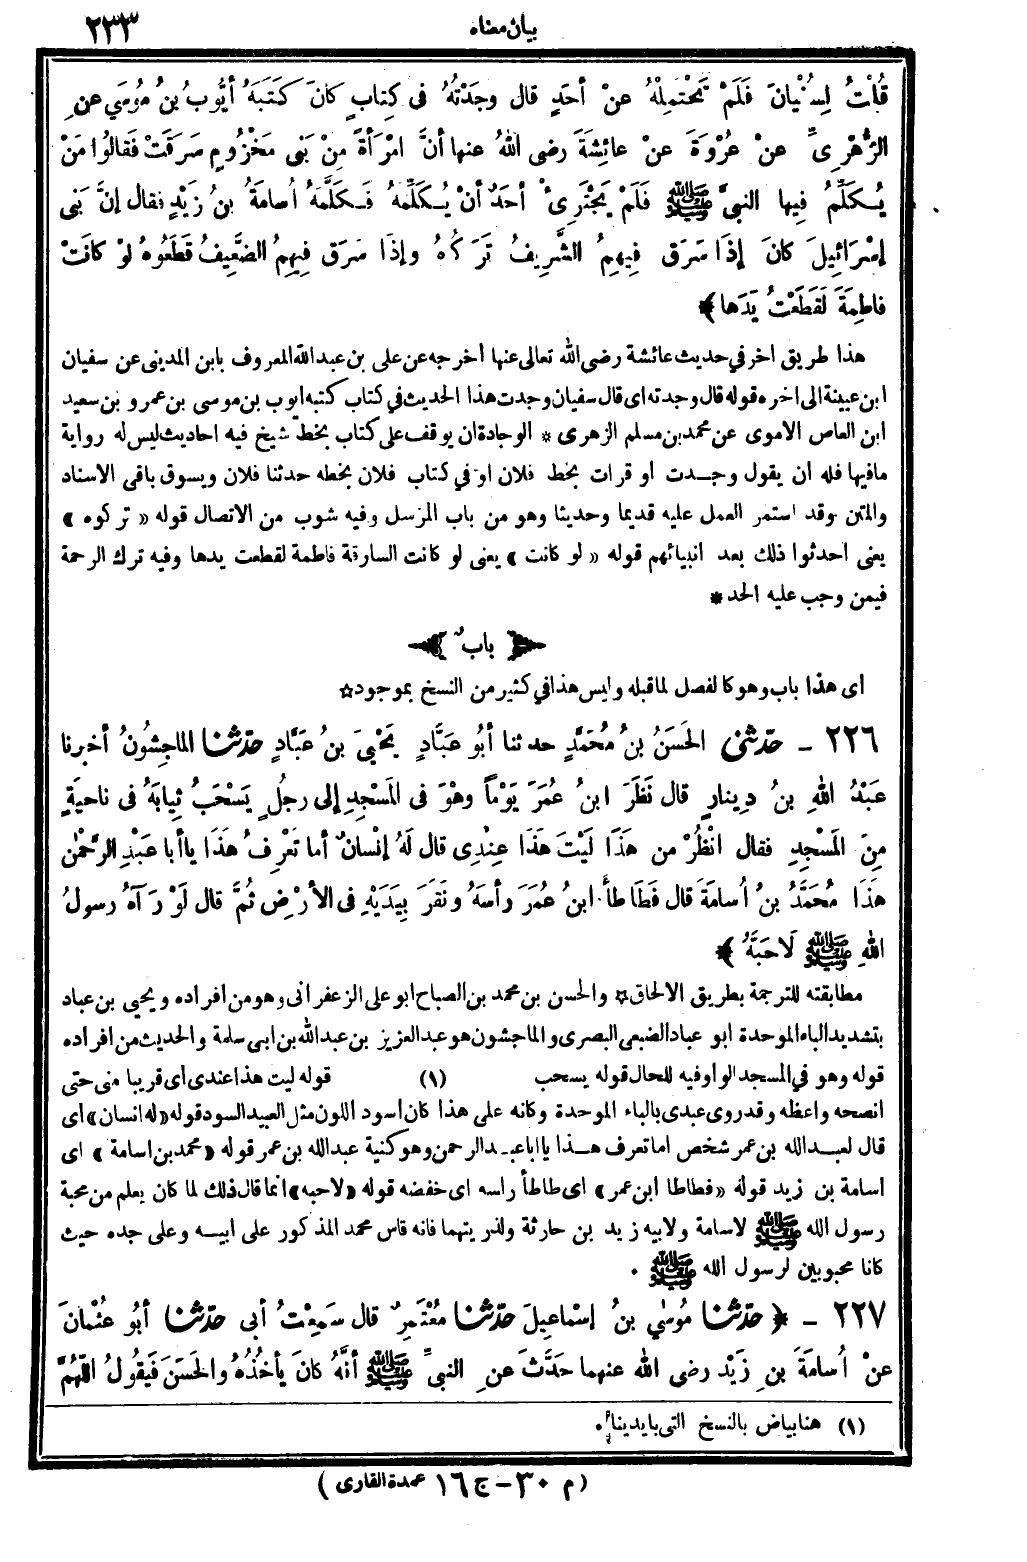 بيان معناه ٢٣٣
قُلْتُ لِسُفْيَانَ فَلَمْ تَحْتَمِلْهُ عنْ أحَدٍ قال وجَدْتُهُ فى كِتابٍ كانَ كَتَبَهُ أيُّوبُ بنُ مُوسَي عنِ
الزُّهْرِىِّ عنْ عُرْوَةَ عنْ عائِشَةَ رضى اللهُ عنها أنَّ امْرَأةً مِنْ بَنِى مَخْزُومٍ سَرَقَتْ فَقالُوا مَنْ
يُكَلِّمُ فِيها النبىَّ ﷺ فَلَمْ يَجْتَرِىءْ أحَدٌ أنْ يُكَلِّمَهُ فَكَلَّمَهُ أُسامَةُ بنُ زَيْدٍ فقال إنَّ بَنِى
إسْرَائِيلَ كانَ إذَا سَرَقَ فِيهِمُ الشَّرِيفُ تَرَكُوهُ وإذَا سَرَقَ فِيهِمُ الضَّعِيفُ قَطَعُوهُ لوْ كانَتْ
فاطِمَةَ لَقَطَعْتُ يَدَها ﴾
هذا طريق اخر في حديث عائشة رضى الله تعالى عنها أخرجه عن على بن عبدالله المعروف بابن المدينى عن سفيان
ابن عيينة الى اخره قوله قال وجدته اى قال سفيان وجدت هذا الحديث في كتاب كتبه ايوب بن موسى بن عمرو بن سعيد
ابن العاص الاموى عن محمد بن مسلم الزهرى * الوجادة ان يوقف على كتاب بخط شيخ فيه احاديث ليس له رواية
مافيها فله ان يقول وجدت او قرات بخط فلان او في كتاب فلان بخطه حدثنا فلان ويسوق باقى الاسناد
والمتن وقد استمر العمل عليه قديما وحديثا وهو من باب المرسل وفيه شوب من الاتصال قوله « تركوه »
يعنى احدثوا ذلك بعد انبيائهم قوله « لو كانت » يعنى لو كانت السارقة فاطمة لقطعت يدها وفيه ترك الرحمة
فيمن وجب عليه الحد *
﴿ بابٌ ﴾
اى هذا باب وهو كالفصل لما قبله وليس هذا في كثير من النسخ بموجود ☆
٢٢٦ - حدّثنى الحَسَنُ بنُ مُحَمَّدٍ حدثنا أبُو عَبَّادٍ يَحْيىَ بنُ عَبَّادٍ حدّثنا الماجِشُونُ أخبرنا
عَبْدُ اللهِ بنُ دِينارٍ قال نَظَرَ ابنُ عُمَرَ يَوْماً وهْوَ فى المَسْجِدِ إلى رجُلٍ يَسْحَبُ ثِيابَهُ فى ناحِيَةٍ
مِنَ المَسْجِدِ فقال انْظُرْ من هَذَا لَيْتَ هَذَا عِنْدِى قال لَهُ إنْسانٌ أما تَعْرِفُ هَذَا ياأبا عَبْدِ الرَّحْمٰنِ
هَذَا مُحَمَّدُ بنُ أُسامَةَ قال فَطَاطأَ ابنُ عُمَرَ رأسَهُ ونَقَرَ بِيَدَيْهِ فى الأرْضِ ثُمَّ قال لَوْ رَآهُ رسولُ
اللهِ ﷺ لَاحَبَّهُ ﴾
مطابقته للترجمة بطريق الالحاق ☆ والحسن بن محمد بن الصباح ابو على الزعفرانى وهو من افراده ويحيى بن عباد
بتشديد الباء الموحدة ابو عباد الضبعى البصرى والماجشون هو عبدالعزيز بن عبدالله بن ابى سلمة والحديث من افراده
قوله وهو في المسجد الواو فيه للحال قوله يسحب (١) قوله ليت هذا عندى اى قريبا منى حتى
انصحه واعظه وقدروى عبدى بالباء الموحدة وكانه على هذا كان اسود اللون مثل العبيد السود قوله «له انسان» اى
قال لعبدالله بن عمر شخص اما تعرف هذا يا ابا عبدالرحمن وهو كنية عبدالله بن عمر قوله « محمد بن اسامة » اى
اسامة بن زيد قوله «فطاطا ابن عمر» اى طاطأ راسه اى خفضه قوله «لاحبه» انما قال ذلك لما كان يعلم من محبة
رسول الله ﷺ لاسامة ولابيه زيد بن حارثة ولذريتهما فانه قاس محمد المذكور على ابيه وعلى جده حيث
كانا محبوبين لرسول الله ﷺ .
٢٢٧ - ﴿ حدّثنا مُوسَى بنُ إسْماعِيلَ حدّثنا مُعْتَمِرٌ قال سَمِعْتُ أبى حدّثنا أبُو عُثْمَانَ
عنْ أُسامَةَ بنِ زَيْدٍ رضى الله عنهما حدَّثَ عنِ النبىِّ ﷺ أنَّهُ كانَ يأخُذُهُ والحَسَنَ فَيقُولُ اللّهُمَّ
(١) هنا بياض بالنسخ التى بايدينا .
( م ٣٠ - ج ١٦ عمدة القارى )